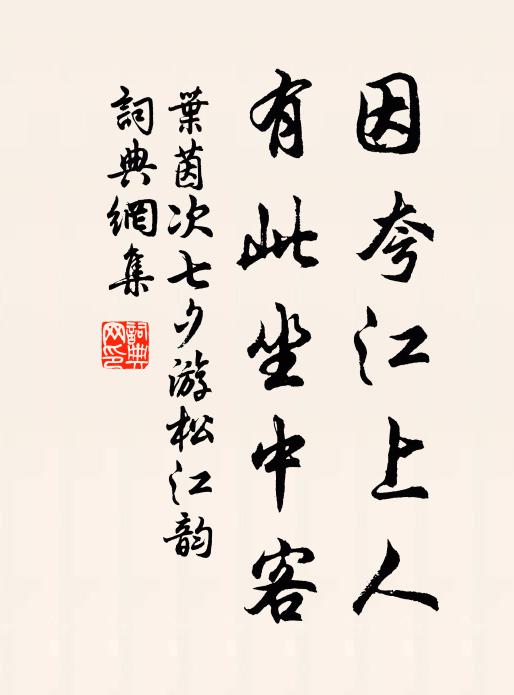 因夸江上人
有此坐中客
葉茵次七夕游松江韵
詞典網集
詞典網印